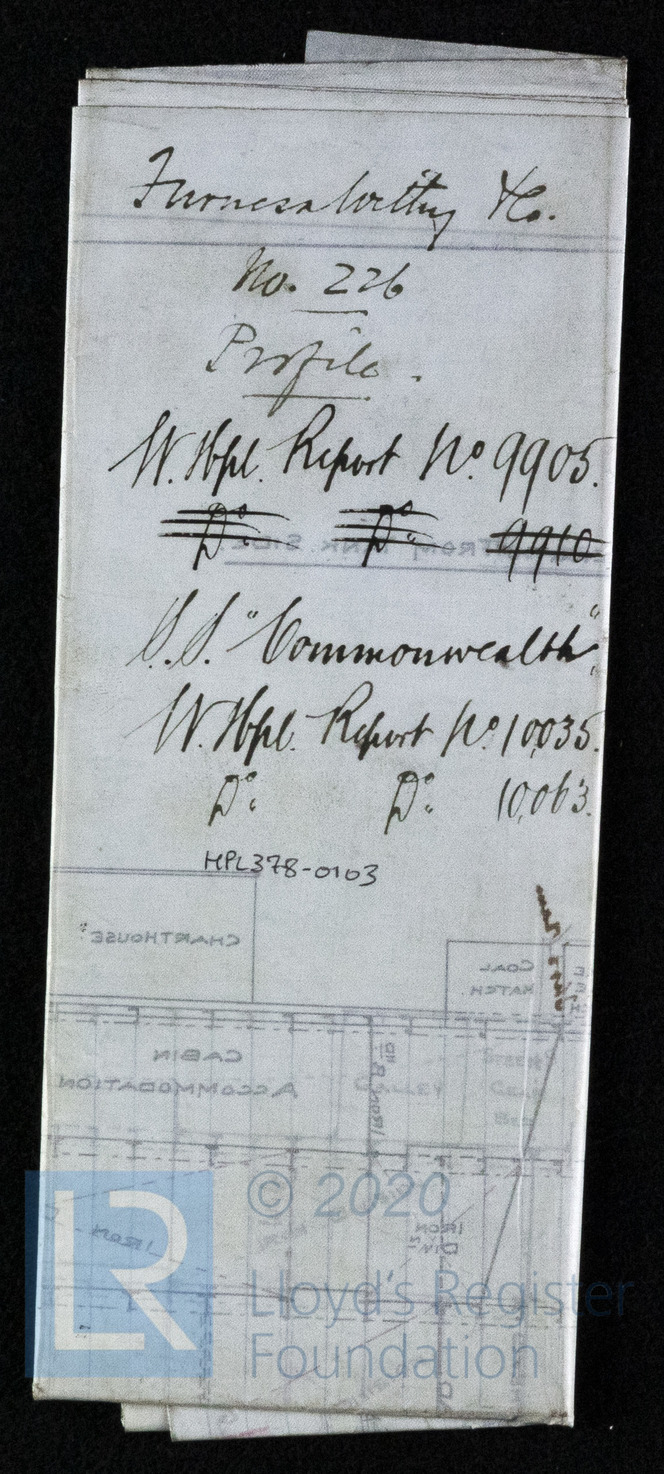 Furness Withy & Co.
No. 226
Profile.
W. Hpl. Report No. 9905.
Do. Do. 9910
S.S. "Commonwealth".
W. Hpl. Report No. 10,035.
Do. Do. 10,063.
HPL378-0103
CHARTHOUSE
COAL
HATCH.
CABIN
ACCOMMODATION
GALLEY
IRON
IRON
© 2020
LR
Lloyd's Register
Foundation